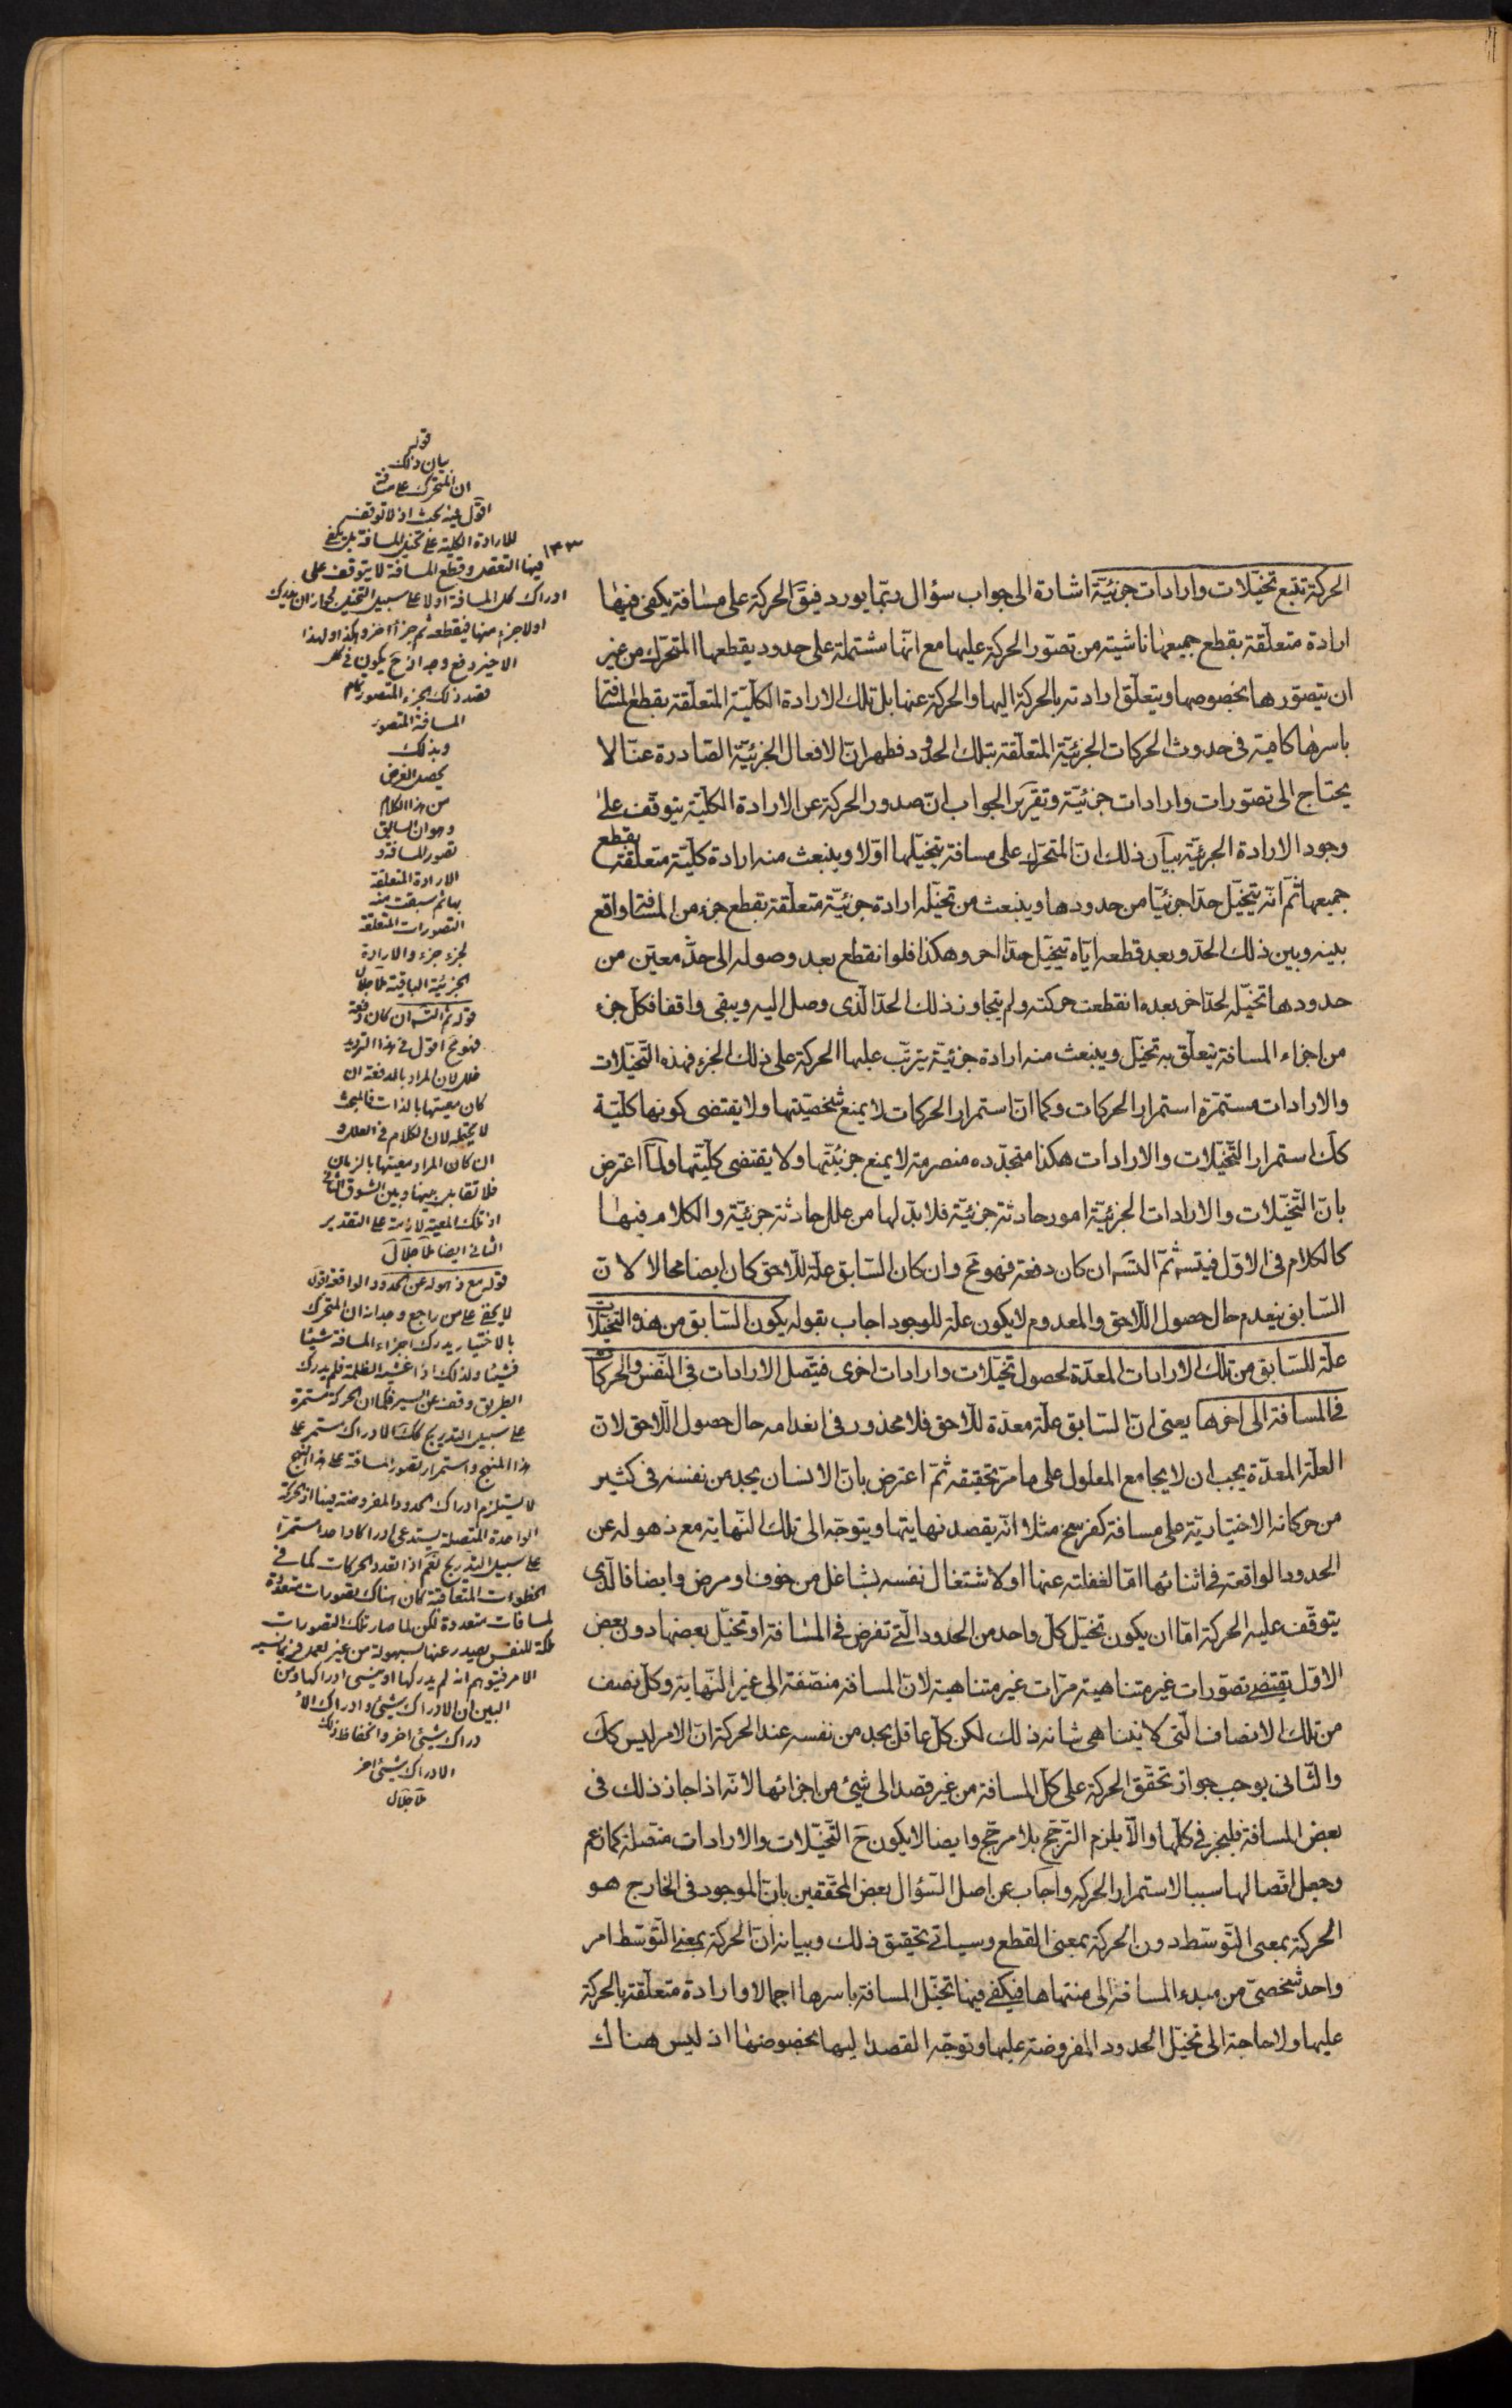 الحركة تتبع تخيّلات وارادات جزئيّة اشارة الى جواب سؤال ربّما يورد فيقَ الحركة على مسافة يكفى فيها
ارادة متعلّقة بقطع جميعها ناشية من تصوّر الحركة عليها مع انّها مشتملة على حدود يقطعها المتحرّك من غير
ان يتصوّرها بخصوصها ويتعلّق ارادته بالحركة اليها والحركة عنها بل تلك الارادة الكلّيّة المتعلّقة بقطع المسافة
باسرها كافية فى حدوث الحركات الجزئيّة المتعلّقة بتلك الحدود فظهر انّ الافعال الجزئيّة الصّادرة عنّا لا
يحتاج الى تصوّرات وارادات جزئيّة وتقرير الجواب انّ صدور الحركة عن الارادة الكلّيّة يتوقّف على
وجود الارادة الجزئيّة بيان ذلك انّ المتحرّك على مسافة يتخيّلها اوّلا وينبعث منه ارادة كلّيّة متعلّقة بقطع
جميعها ثمّ انّه يتخيّل حدّا جزئيّا من حدودها وينبعث من تخيّله ارادة جزئيّة متعلّقة بقطع جزء من المسافة واقع
بينه وبين ذلك الحدّ وبعد قطعه ايّاه يتخيّل حدّا اخر وهكذا فلو انقطع بعد وصوله الى حدّ معيّن من
حدودها تخيّله لحدّ اخر بعده انقطعت حركته ولم يتجاوز ذلك الحدّ الّذى وصل اليه ويبقى واقفا فكلّ جزء
من اجزاء المسافة يتعلّق به تخيّل وينبعث منه ارادة جزئيّة يترتّب عليها الحركة على ذلك الجزء فهذه التّخيّلات
والارادات مستمرّة استمرار الحركات وكما انّ استمرار الحركات لا يمنع شخصيّتها ولا يقتضى كونها كلّيّة
كك استمرار التّخيّلات والارادات هكذا متجدّده منصرمة لا يمنع جزئيّتها ولا يقتضى كلّيّتها ولمّا اعترض
بانّ التّخيّلات والارادات الجزئيّة امور حادثة جزئيّة فلا بدّ لها من علل حادثة جزئيّة والكلام فيها
كالكلام فى الاوّل فيتسه ثمّ التسَه ان كان دفعة فهو مح وان كان السّابق علّة للّاحق كان ايضا محالا لانّ
السّابق ينعدم حال حصول اللّاحق والمعدوم لا يكون علّة للموجود اجاب بقوله يكون السّابق من هذه التخيّلات
علّة للسّابق من تلك الارادات المعدّة لحصول تخيّلات وارادات اخرى فيتّصل الارادات فى النّفس والحركات
فى المسافة الى اخرها يعنى انّ السّابق علّة معدّة للّاحق فلا محذور فى انعدامه حال حصول اللّاحق لانّ
العلّة المعدّة يجب ان لا يجامع المعلول على ما مرّ تحقيقه ثمّ اعترض بانّ الانسان يجد من نفسه فى كثير
من حركاته الاختياريّة على مسافة كفرسخ مثلا انّه يقصد نهايتها ويتوجّه الى تلك النّهاية مع ذهوله عن
الحدود الواقعة فى اثنائها امّا لغفلته عنها او لاشتغال نفسه بشاغل من خوف او مرض وايضا فالّذى
يتوقّف عليه الحركة امّا ان يكون تخيّل كلّ واحد من الحدود الّتى تفرض فى المسافة او تخيّل بعضها دون بعض
الاوّل يقتضى تصوّرات غير متناهية مرّات غير متناهية لانّ المسافة منصّفة الى غير النّهاية وكلّ نصف
من تلك الانصاف الّتى لا يتناهى شانه ذلك لكن كلّ عاقل يجد من نفسه عند الحركة انّ الامر ليس كك
والثّانى يوجب جواز تحقّق الحركة على كلّ المسافة من غير قصد الى شيئ من اجزائها لانّه اذا جاز ذلك فى
بعض المسافة فليجز فى كلّها والّا يلزم التّرجّح بلا مرجّح وايضا لا يكون حَ التّخيّلات والارادات متّصلة كما زعم
وجعل اتّصالها سببا لاستمرار الحركة واجاب عن اصل السّؤال بعض المحقّقين بانّ الموجود فى الخارج هو
الحركة بمعنى التّوسّط دون الحركة بمعنى القطع وسياتى تحقيق ذلك وبيانه انّ الحركة بمعنى التّوسّط امر
واحد شخصىّ من مبدء المسافة الى منتهاها فيكفى فيها تخيّل المسافة باسرها اجمالا وارادة متعلّقة بالحركة
عليها ولا حاجة الى تخيّل الحدود المفروضة عليها وتوجّه القصد اليها بخصوصها اذ ليس هناك
١٤٣
قوله
بيان ذلك
ان المتحرك على مسافة
اقول فيه بحث اذ لا توقف
للارادة الكلية على تخيل المسافة بل يكفى
فيها التعقل وقطع المسافة لا يتوقف على
ادراك كل المسافة اولا على سبيل التخيل لجواز ان يدرك
اولا جزء منها فيقطعه ثم جزأ اخر وهكذا
الاخير
فقد ذلك الجزء المتصور
المسافة المتصور
وبذلك
يحصل الغرض
من هذا الكلام
وهو ان السابق
تصور المسافة و
الارادة المتعلقة
بها ثم سبقت منه
التصورات المتعلقة
بجزء جزء والارادة
الجزئية الباقية
قوله ثم التسَه ان كان دفعة
فهو مح اقول فى هذا الترديد
خلل لان المراد بالدفعة ان
كان معيتها بالذات فالبحث
لا يحتمله لان الكلام فى العلل و
ان كان المراد معيتها بالزمان
فلا تقابل بينها وبين الشق الثانى
اذ تلك المعية لازمة على التقدير
الثانى ايضا
قوله مع ذهوله عن الحدود الواقعة اقول
لا يخفى على من راجع وجدانه ان المتحرك
بالاختيار يدرك اجزاء المسافة شيئا
فشيئا ولذلك اذا غشيه الظلمة فلم يدرك
الطريق وقف عن السير فكما ان الحركة مستمرة
على سبيل التدريج كك الادراك مستمر على
هذا المنهج واستمرار تصور المسافة على هذا النهج
لا يستلزم ادراك الحدود المفروضة فيها اذ الحركة
الواحدة المتصلة يستدعى ادراكا واحدا مستمرا
على سبيل التدريج نعم اذا تعدد الحركات كما فى
الخطوات المتعاقبة كان هناك تصورات متعددة
لمسافات متعددة لكن لما صار تلك التصورات
ملكة للنفس يصدر عنها بسهولة من غير تعمل
الامر فيتوهم انه لم يدركها او ينسى ادراكها ومن
البين ان الادراك شيئ وادراك الا
دراك شيئ اخر وانحفاظ ذلك
الادراك شيئ اخر